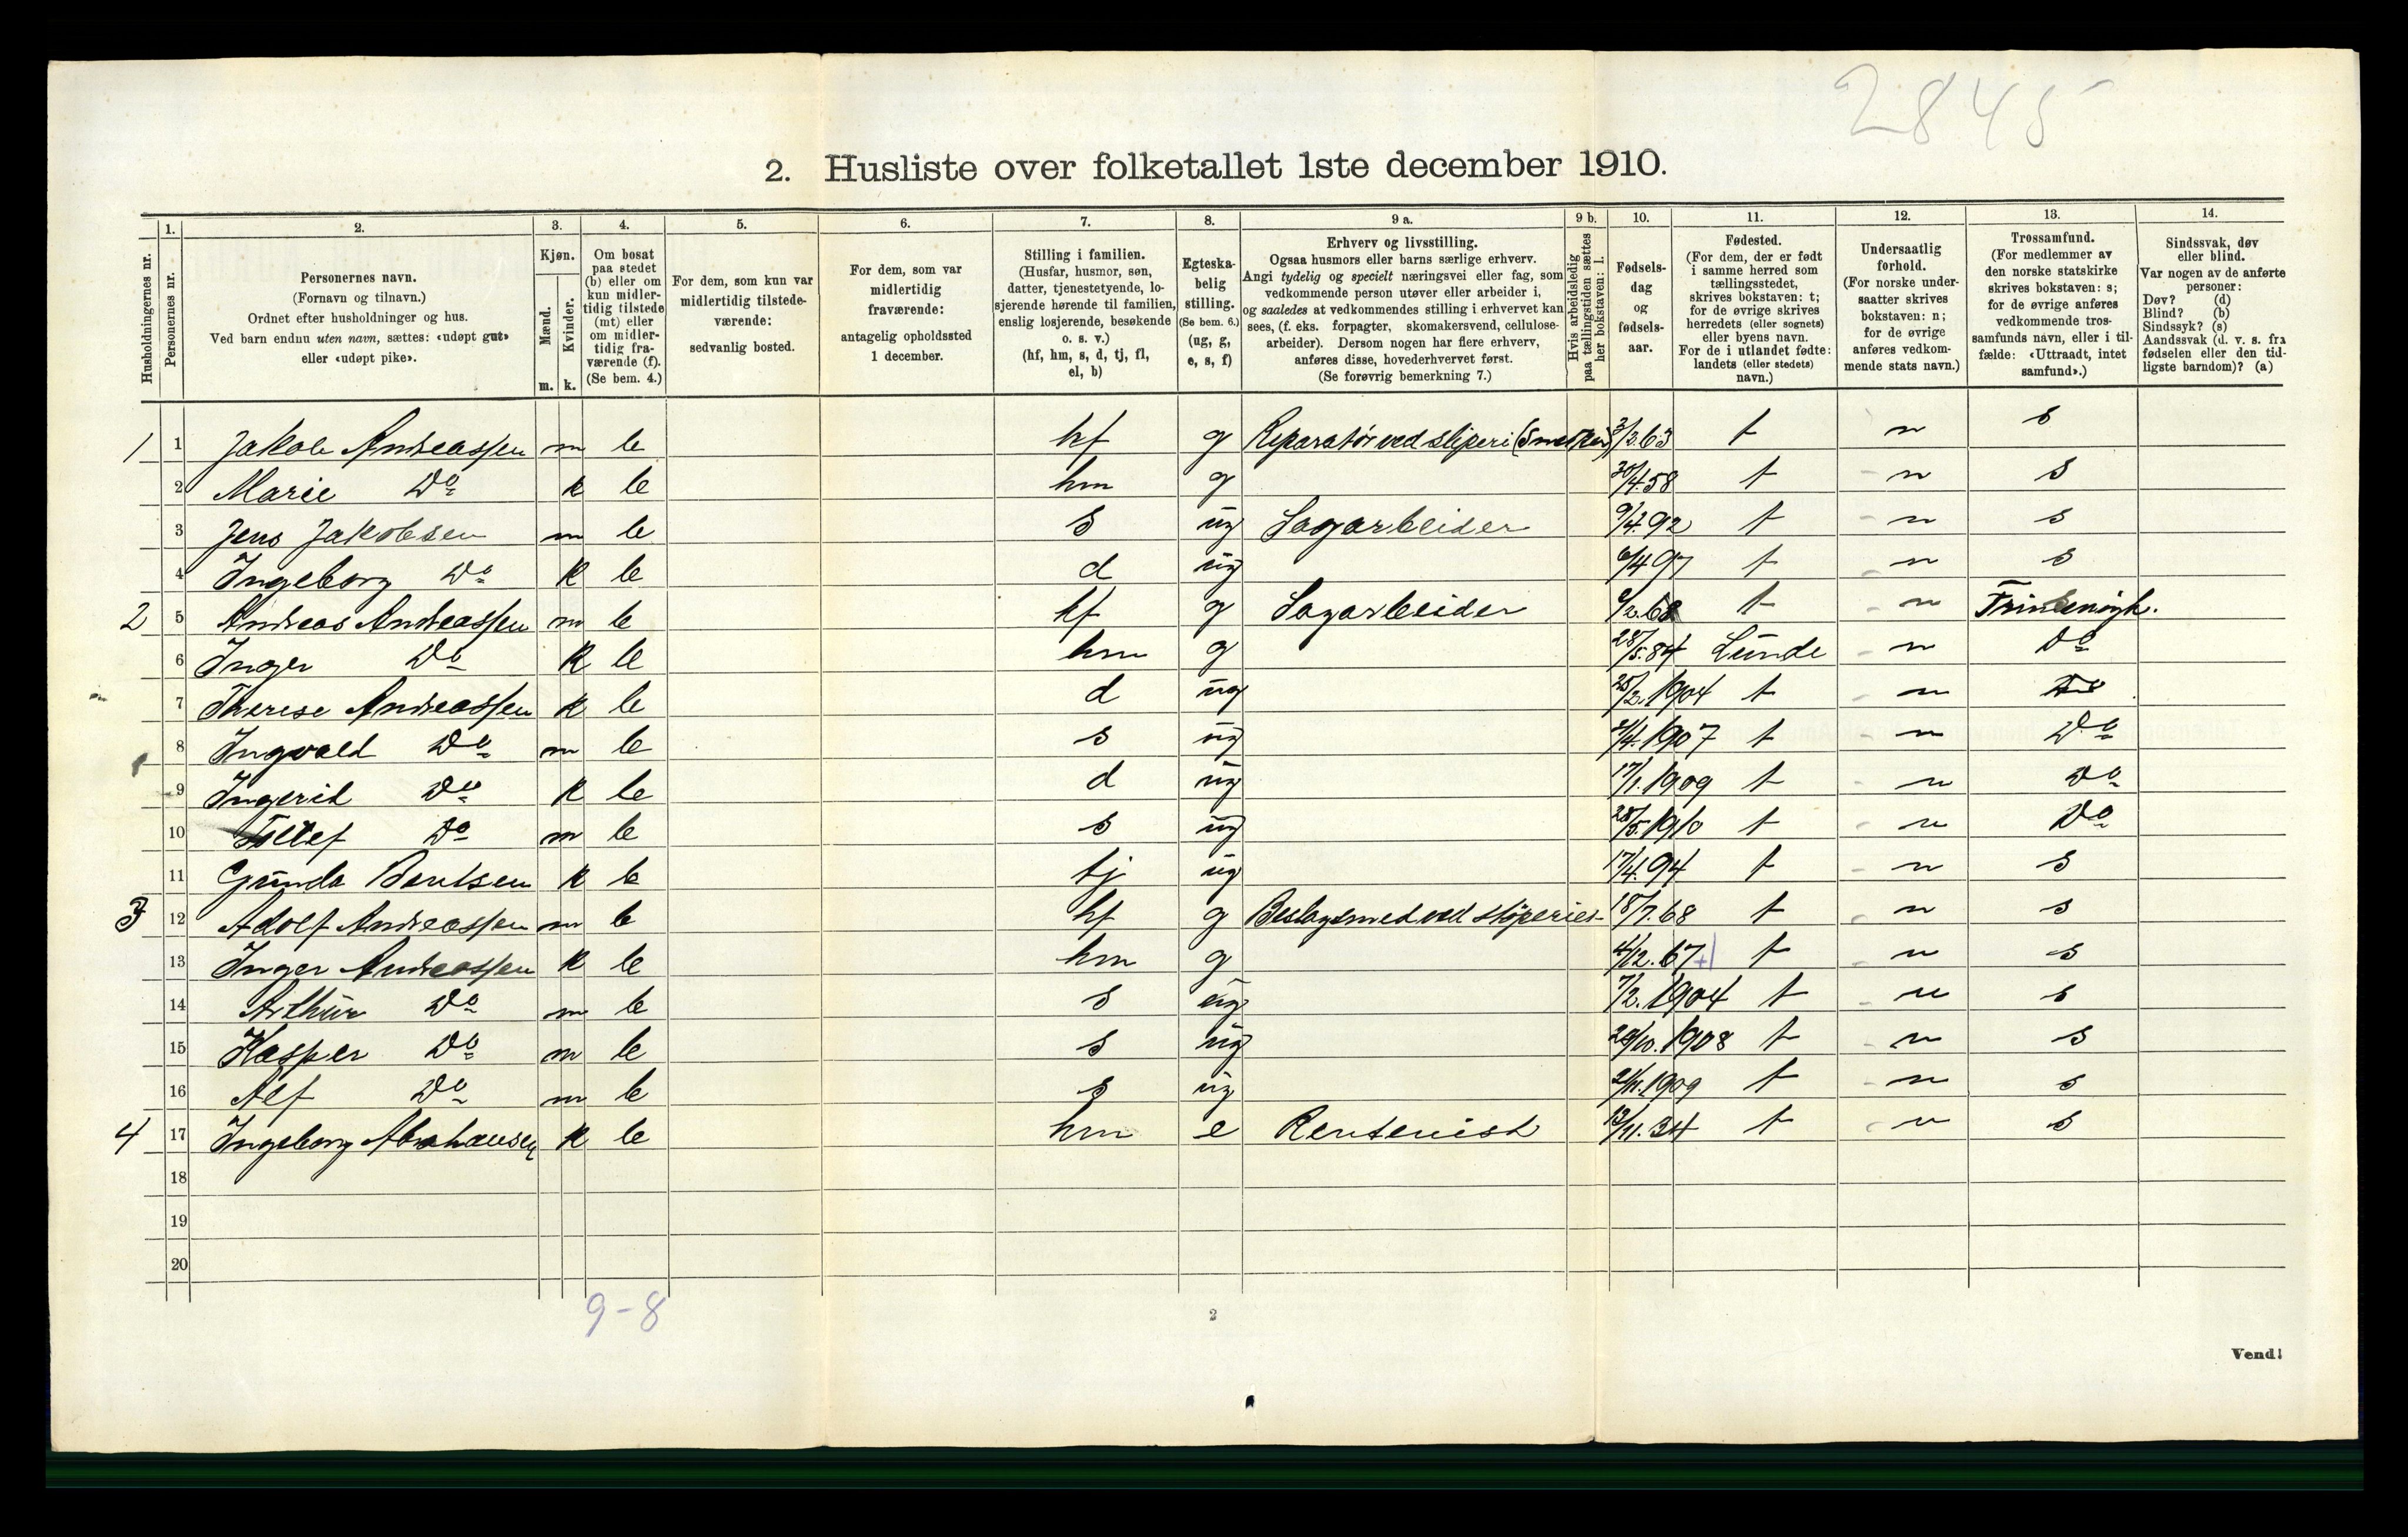 2845
2. Husliste over folketallet 1ste december 1910.
1. 2. 3. 4. 5. 6. 7. 8. 9 a. 9 b. 10. 11. 12. 13. 14.
Husholdningernes nr.
Personernes nr.
Personernes navn.
(Fornavn og tilnavn.)
Ordnet efter husholdninger og hus.
Ved barn endnu uten navn, sættes: «udøpt gut»
eller «udøpt pike».
Kjøn.
Mænd.
Kvinder.
m. k.
Om bosat
paa stedet
(b) eller om
kun midler-
tidig tilstede
(mt) eller
om midler-
tidig fra-
værende (f).
(Se bem. 4.)
For dem, som kun var
midlertidig tilstede-
værende:
sedvanlig bosted.
For dem, som var
midlertidig
fraværende:
antagelig opholdssted
1 december.
Stilling i familien.
(Husfar, husmor, søn,
datter, tjenestetyende, lo-
sjerende hørende til familien,
enslig losjerende, besøkende
o. s. v.)
(hf, hm, s, d, tj, fl,
el, b)
Egteska-
belig
stilling.
(Se bem. 6.)
(ug, g,
e, s, f)
Erhverv og livsstilling.
Ogsaa husmors eller barns særlige erhverv.
Angi tydelig og specielt næringsvei eller fag, som
vedkommende person utøver eller arbeider i,
og saaledes at vedkommendes stilling i erhvervet kan
sees, (f. eks. forpagter, skomakersvend, cellulose-
arbeider). Dersom nogen har flere erhverv,
anføres disse, hovederhvervet først.
(Se forøvrig bemerkning 7.)
Hvis arbeidsledig
paa tællingstiden sættes
her bokstaven: l.
Fødsels-
dag
og
fødsels-
aar.
Fødested.
(For dem, der er født
i samme herred som
tællingsstedet,
skrives bokstaven: t;
for de øvrige skrives
herredets (eller sognets)
eller byens navn.
For de i utlandet fødte:
landets (eller stedets)
navn.)
Undersaatlig
forhold.
(For norske under-
saatter skrives
bokstaven: n;
for de øvrige
anføres vedkom-
mende stats navn.)
Trossamfund.
(For medlemmer av
den norske statskirke
skrives bokstaven: s;
for de øvrige anføres
vedkommende tros-
samfunds navn, eller i til-
fælde: «Uttraadt, intet
samfund».)
Sindssvak, døv
eller blind.
Var nogen av de anførte
personer:
Døv? (d)
Blind? (b)
Sindssyk? (s)
Aandssvak (d. v. s. fra
fødselen eller den tid-
ligste barndom)? (a)
1 1 Jakob Andreassen m b hf g Reparatør ved sliperi (Snekker) 3/3.63 t n s
2 Marie Do k b hm g 30/4.58 t n s
3 Jens Jakobsen m b s ug Sagarbeider 9/4.92 t n s
4 Ingeborg Do k b d ug 6/4 97 t n s
2 5 Andreas Andreassen m b hf g Sagarbeider t n
6 Inger Do k b hm g 28/5.84 Lunde n Do
7 Therese Andreassen k b d ug 25/2.1904 t n Do
8 Ingvald Do m b s ug 2/4.1907 t n Do
9 Ingerid Do k b d ug 17/1.1909 t n Do
10 Do m b s ug 28/5.1910 t n Do
11 Gunda Bentsen k b tj ug 17/4.94 t n s
3 12 Adolf Andreassen m b hf g Beslagsmed ved sliperiet 18/7.68 t n s
13 Inger Andreassen k b hm g 4/12.67 t n s
14 Arthur Do m b s ug 7/2.1904 t n s
15 Kasper Do m b s ug 29/10.1908 t n s
16 Alf Do m b s ug 21/11.1909 t n s
4 17 Ingeborg Abrahamsen k b hm e Rentenist 13/11.34 t n s
18
19
20
9-8
2
Vend!